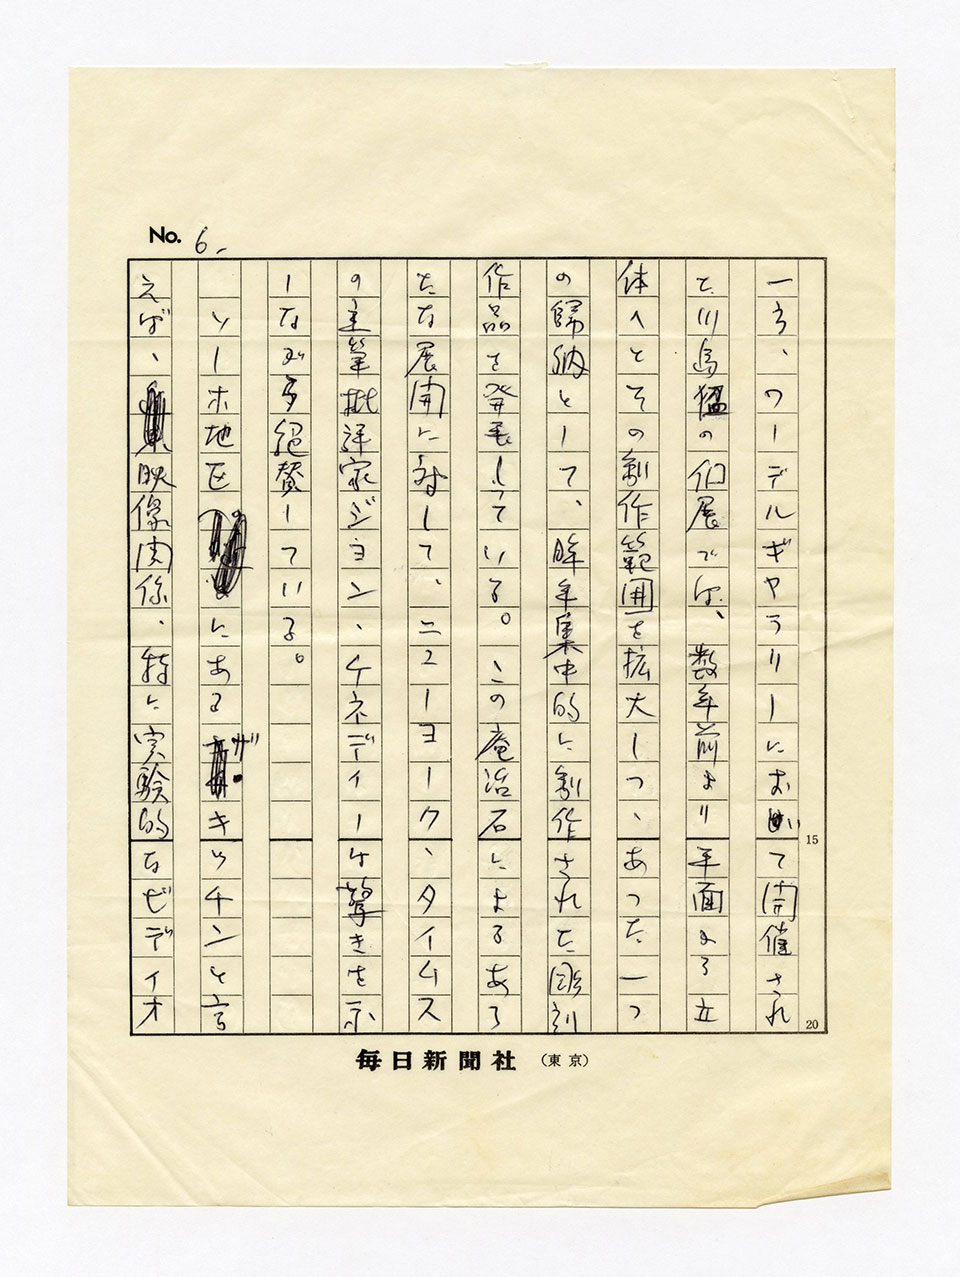 No. 6.
一方、ワーデルギャラリーにおいて開催され
た川島猛の個展では、数年前より平面より立
体へとその創作範囲を拡大しつゝあった一つ
の帰納として、昨年集中的に創作された彫刻
作品を発表している。この庵治石によるあら
たな展開に対して、ニューヨーク、タイムス
の主筆批評家ジョン、ケネディーは驚きを示
しながら絶賛している。
ソーホ地区にあるザ・キッチンと言
えば、映像関係、特に実験的なビディオ
15
20
毎日新聞社（東京）